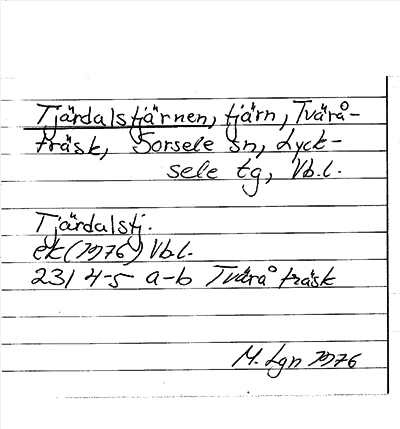 Tjärdalstjärnen, tjärn, Tvärå-
träsk, Sorsele sn, Lyck-
sele tg, Vb.l.
Tjärdalstj.
ek (1976) Vb.l.
231 4-5 a-b Tvärå träsk
M. Lgn 1976